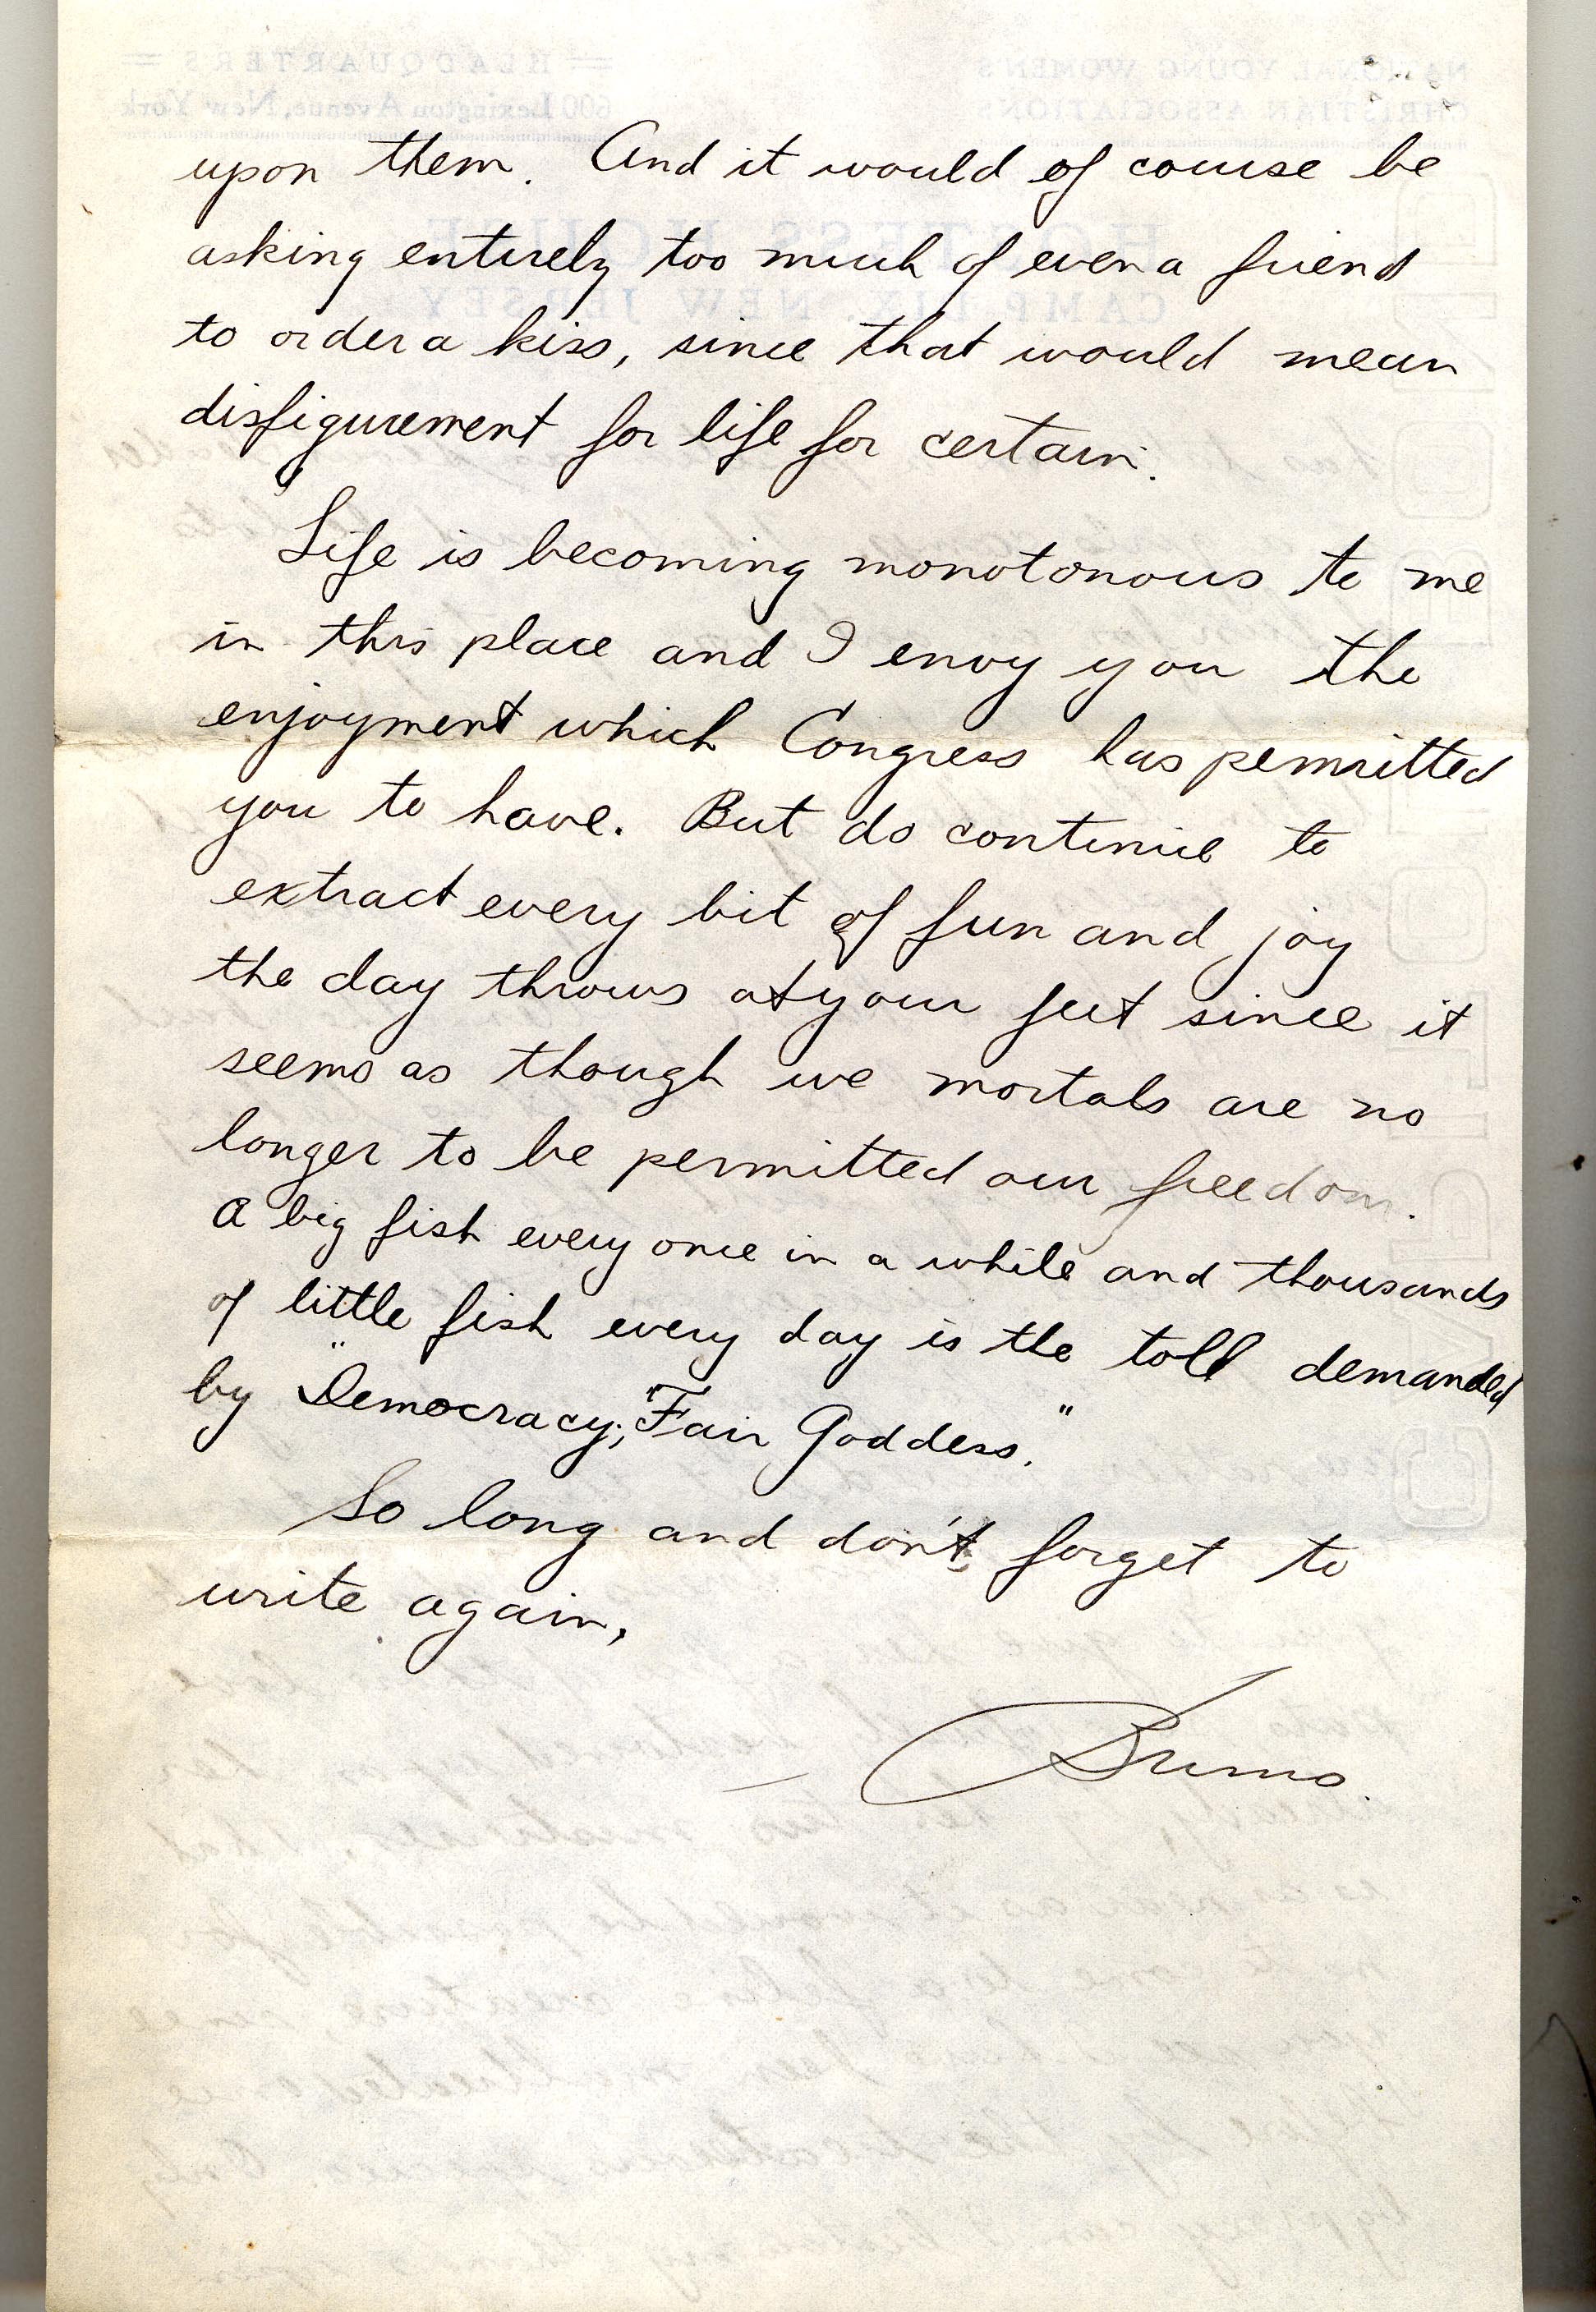 upon them. And it would of course be
asking entirely too much of even a friend
to order a kiss, since that would mean
disfigurement for life for certain.
Life is becoming monotonous to me
in this place and I envy you the
enjoyment which Congress has permitted
you to have. But do continue to
extract every bit of fun and joy
the day throws at your feet since it
seems as though we mortals are no
longer to be permitted our freedom.
A big fish every once in a while and thousands
of little fish every day is the toll demanded
by "Democracy; "Fair Goddess."
So long and don't forget to
write again,
Bruno.
NATIONAL YOUNG WOMEN'S
CHRISTIAN ASSOCIATION
HEADQUARTERS
600 Lexington Avenue, New York
HOSTESS HOUSE
CAMP DIX, NEW JERSEY